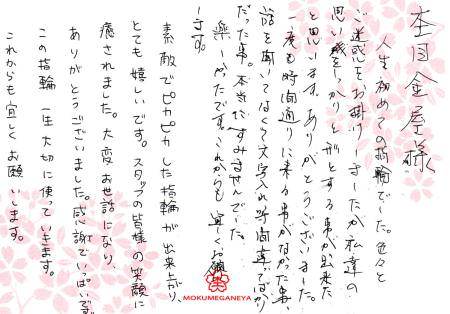 杢目金屋様
人生初めての指輪でした。色々と
ご迷惑をお掛けしましたが私達の
思い残をしっかりと形とする事が出来た
と思います。ありがとうございました。
一度も時間通りに来る事がなかった事、
話を聞いてはくて文字入れ時間違いばかり
だった事。本当にすみませんでした。
楽しかったです。これからも宜しくお願い
します。
素敵でピカピカした指輪が出来上がり、
とても嬉しいです。スタッフの皆様の笑顔に
癒されました。大変お世話になり、
ありがとうございました。感謝でいっぱいです。
この指輪一生大切に使っていきます。
これからも宜しくお願いします。
MOKUMEGANEYA